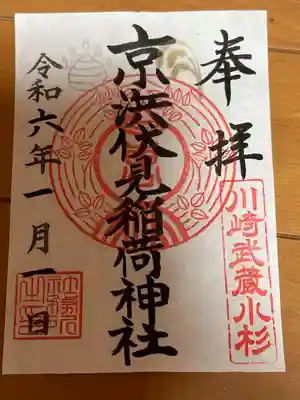 奉拝
川崎武蔵小杉
京浜伏見稲荷神社
令和六年一月一日